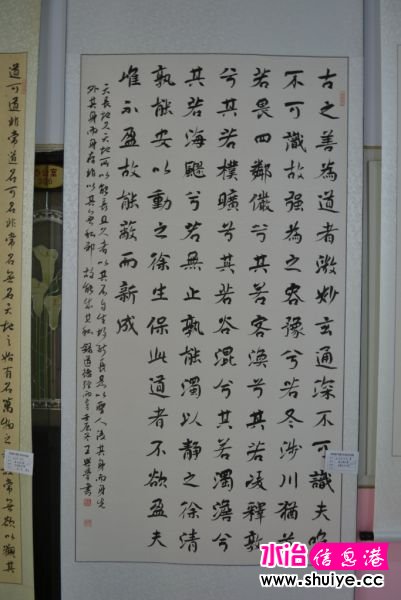 古之善為道者微妙玄通深不可識夫唯
不可識故强為之容豫兮若冬涉川猶兮
若畏四鄰儼兮其若客渙兮其若凌釋敦
兮其若樸曠兮其若谷混兮其若濁澹兮
其若海飂兮若無止孰能濁以靜之徐清
孰能安以動之徐生保此道者不欲盈夫
唯不盈故能敝而新成
天長地久天地所以能長且久者以其不自生故能長生是以聖人後其身而身先
外其身而身存非以其無私邪故能成其私 錄道德經兩章壬辰冬王
道可道非常道名可名非常名無名天地之始有名萬物之
故常無欲以觀其
水冶信息港
www.shuiye.cc